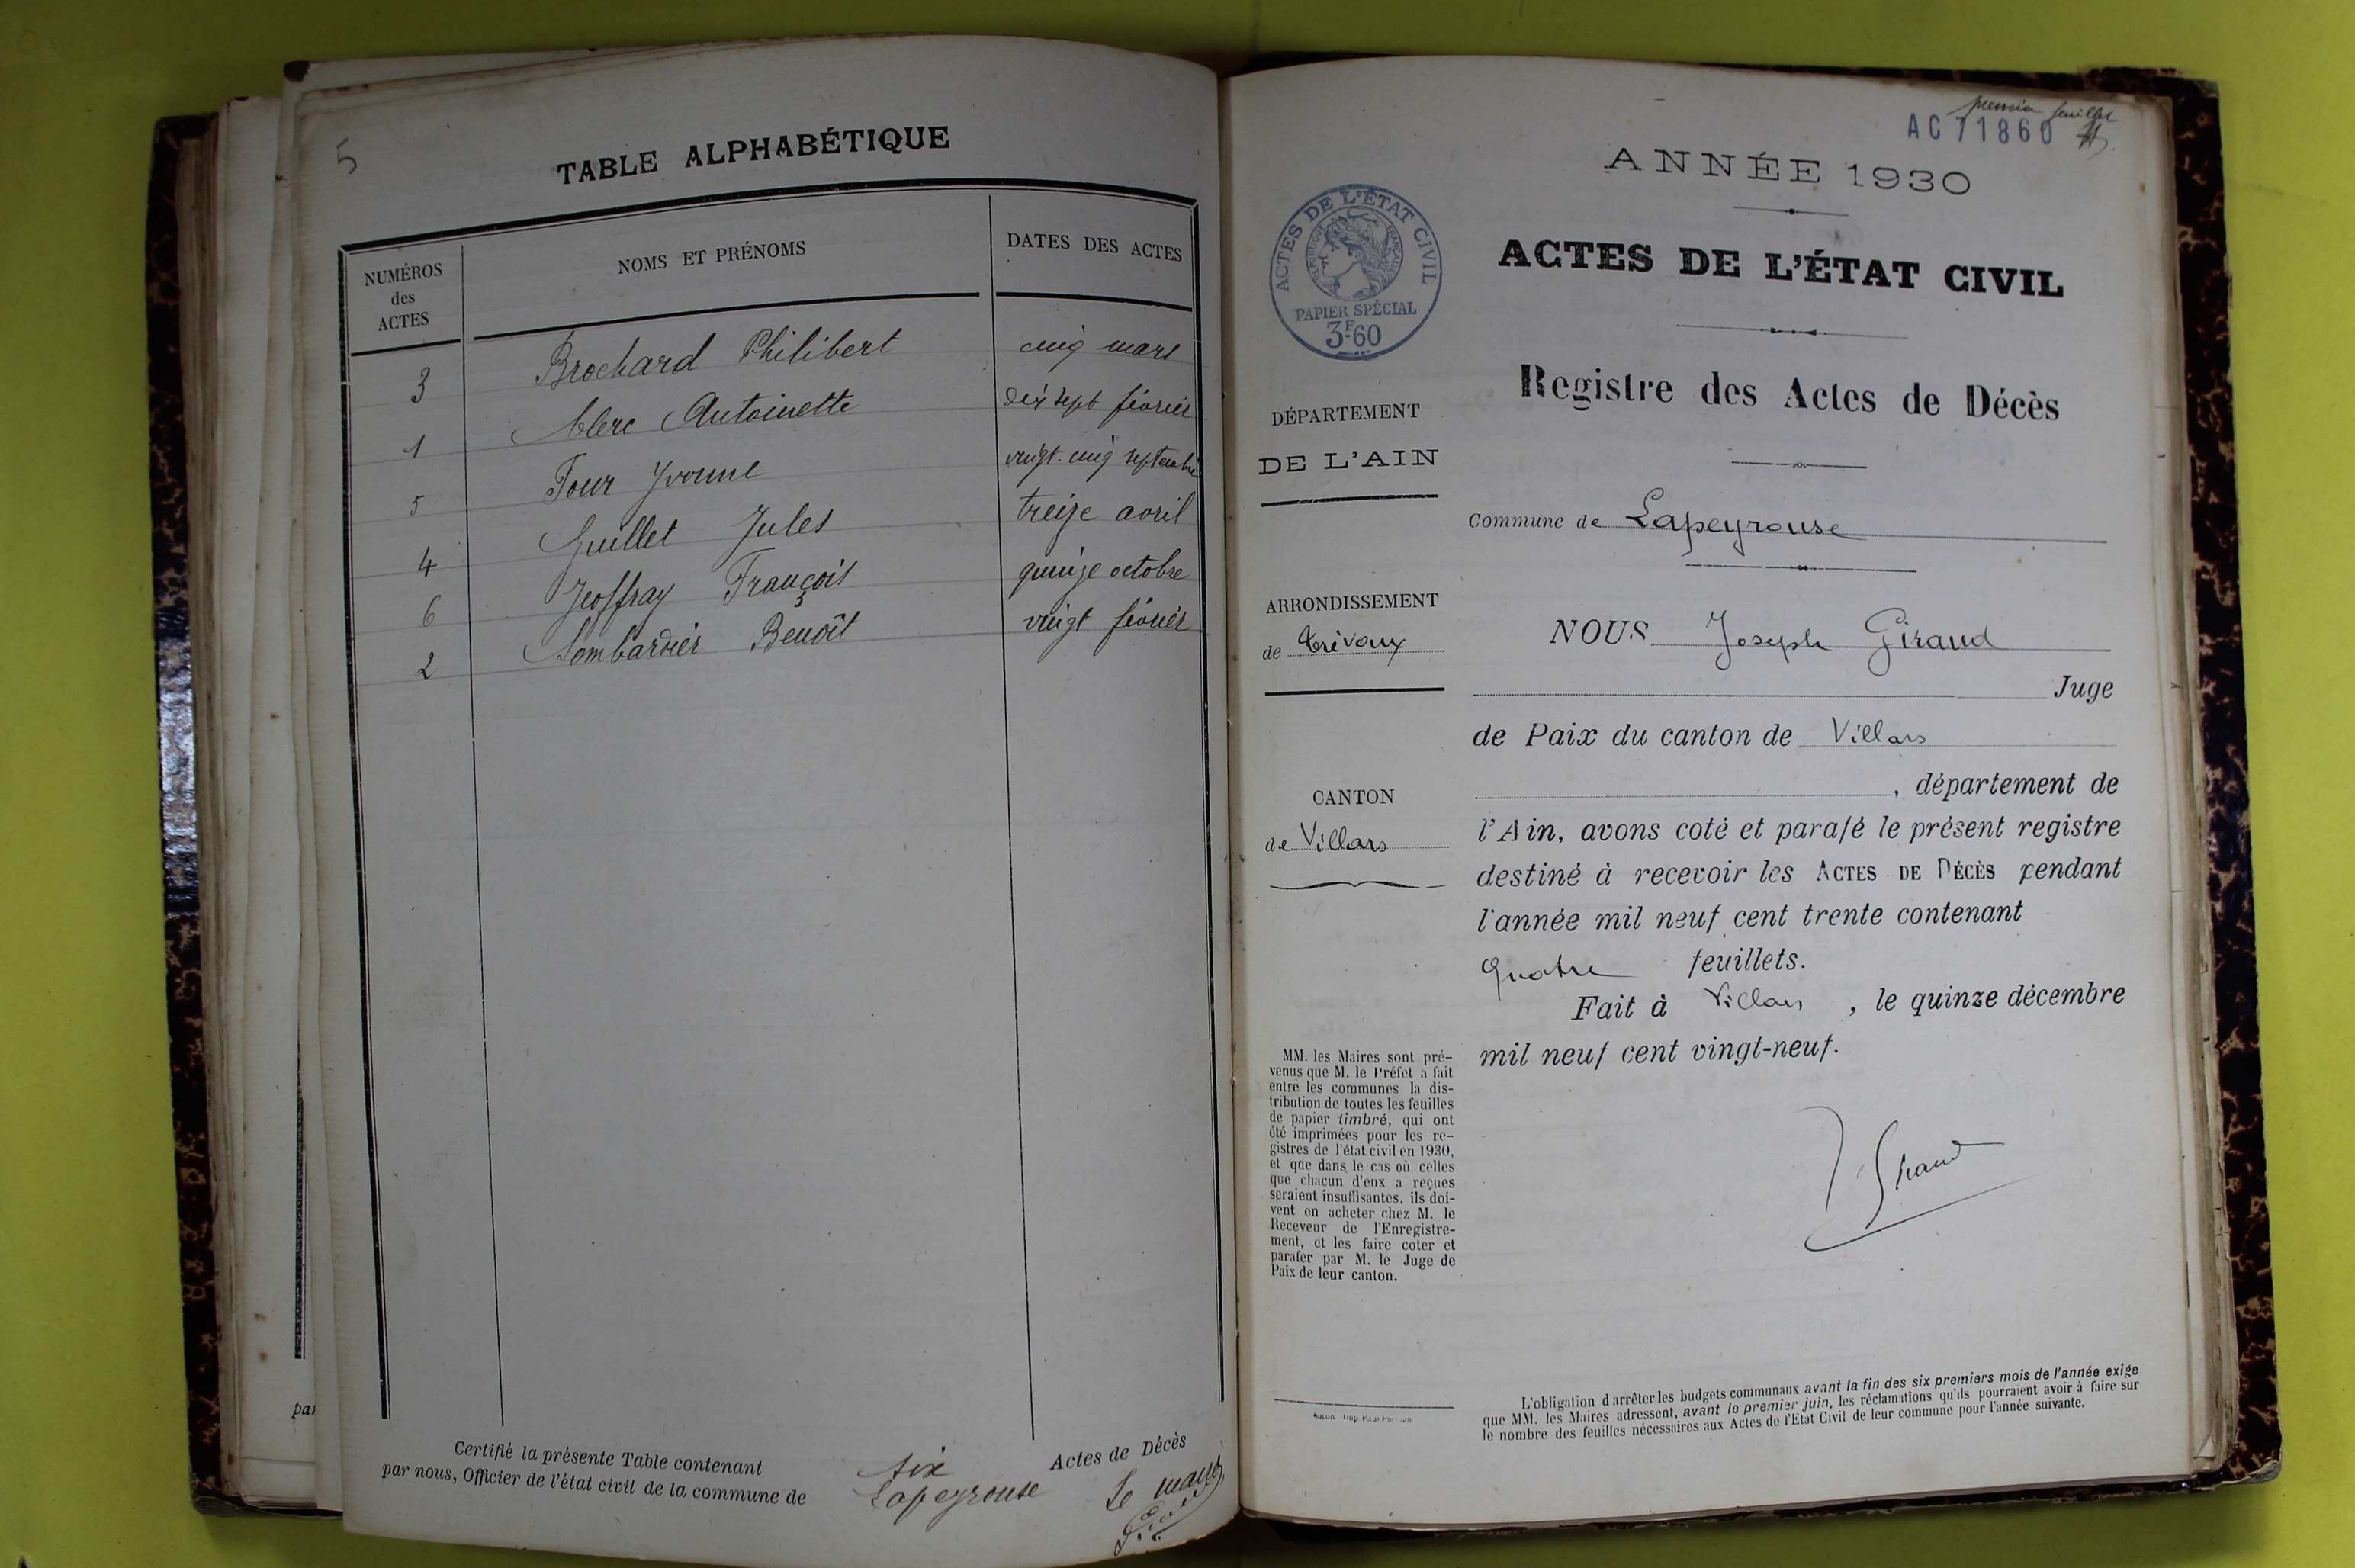 5
TABLE ALPHABÉTIQUE
NUMÉROS
des
ACTES
NOMS ET PRÉNOMS
DATES DES ACTES
3 Brochard Philibert cinq mars
1 Clerc Antoinette dix sept février
5 Four Yvonne vingt-cinq septembre
4 Guillet Jules treize avril
6 Jeoffray François quinze octobre
2 Lombardier Benoît vingt février
Certifié la présente Table contenant six Actes de Décès
par nous, Officier de l'état civil de la commune de Lapeyrouse
Le maire
par
premier feuillet
AC 71860
ANNÉE 1930
ACTES DE L'ÉTAT CIVIL
RÉPUBLIQUE FRANÇAISE
PAPIER SPÉCIAL
3F60
ACTES DE L'ÉTAT CIVIL
Registre des Actes de Décès
DÉPARTEMENT
DE L'AIN
Commune de Lapeyrouse
ARRONDISSEMENT
de Trévoux
NOUS Joseph Giraud
Juge
de Paix du canton de Villars
, département de
CANTON
de Villars
l'Ain, avons coté et parafé le présent registre
destiné à recevoir les ACTES DE DÉCÈS pendant
l'année mil neuf cent trente contenant
quatre feuillets.
Fait à Villars, le quinze décembre
mil neuf cent vingt-neuf.
J Giraud
MM. les Maires sont pré-
venus que M. le Préfet a fait
entre les communes la dis-
tribution de toutes les feuilles
de papier timbré, qui ont
été imprimées pour les re-
gistres de l'état civil en 1930,
et que dans le cas où celles
que chacun d'eux a reçues
seraient insuffisantes, ils doi-
vent en acheter chez M. le
Receveur de l'Enregistre-
ment, et les faire coter et
parafer par M. le Juge de
Paix de leur canton.
L'obligation d'arrêter les budgets communaux avant la fin des six premiers mois de l'année exige
que MM. les Maires adressent, avant le premier juin, les réclamations qu'ils pourraient avoir à faire sur
le nombre des feuilles nécessaires aux Actes de l'État Civil de leur commune pour l'année suivante.